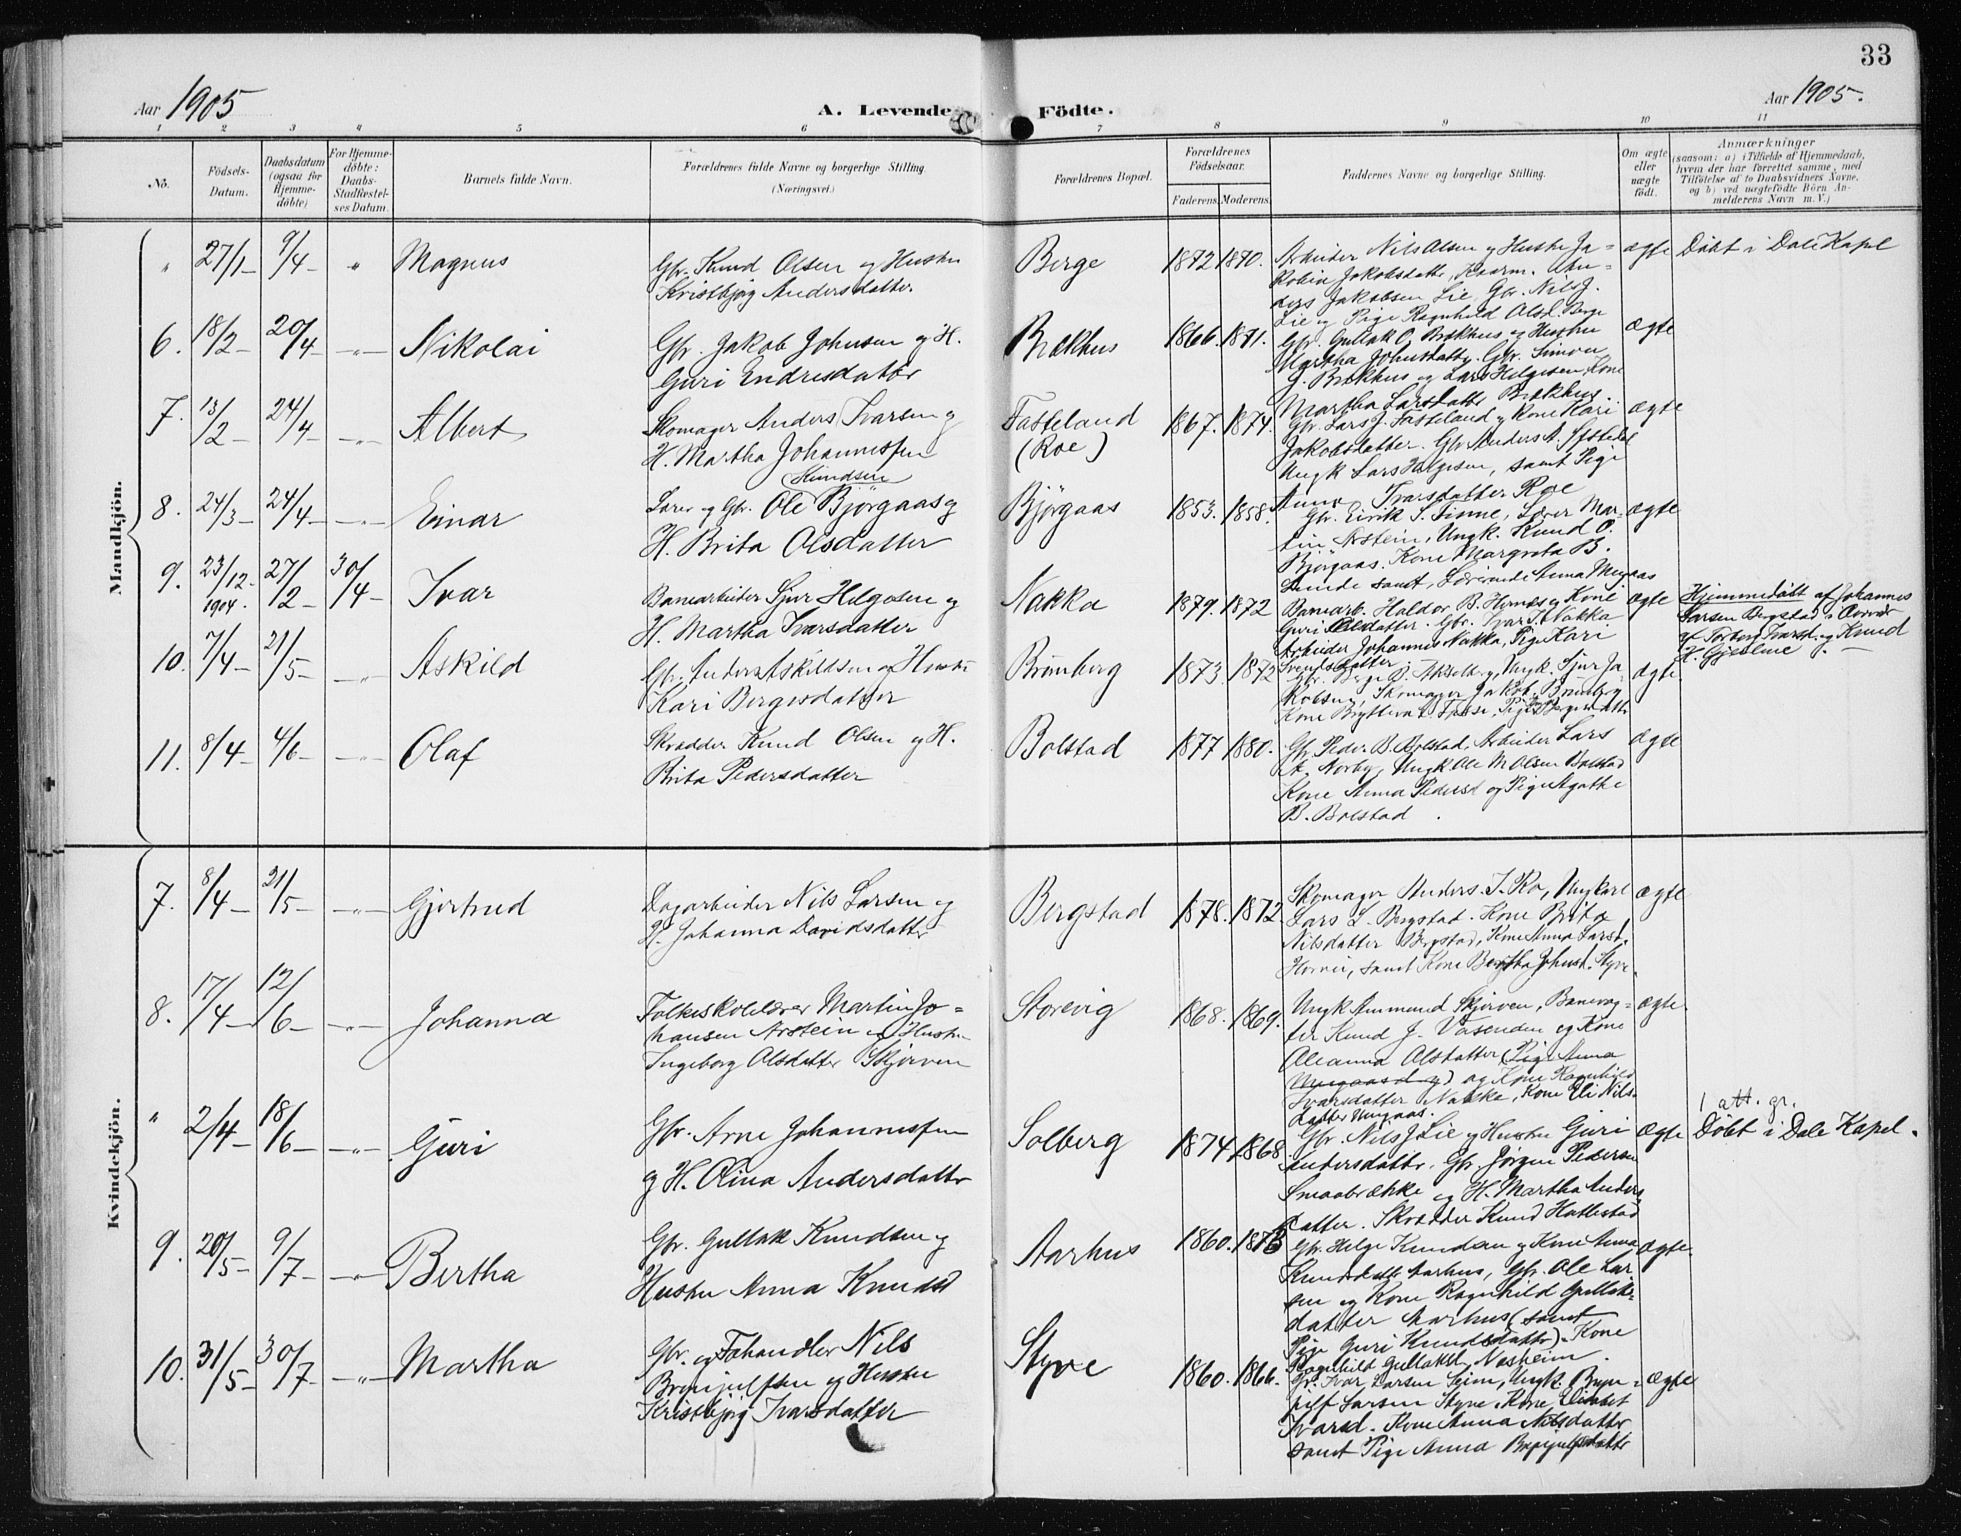 33
Aar 1905
A. Levende Födte.
Aar 1905.
1 2 3 4 5 6 7 8 9 10 11
No.
Födsels-Datum.
Daabsdatum (ogsaa for Hjemmedöbte)
For Hjemmedöbte: Daabs-Stadfæstelses Datum.
Barnets fulde Navn.
Forældrenes fulde Navne og borgerlige Stilling.
(Næringsvei.)
Forældrenes Bopæl.
Forældrenes Födselsaar.
Faderens. Moderens.
Faddernes Navne og borgerlige Stilling.
Om ægte eller uægte födt.
Anmærkninger
(saasom: a) i Tilfælde af Hjemmedaab, hvem der har forrettet samme, med Tilföielse af to Daabsvidners Navne, og b) ved uægtefödte Börn Anmelderens Navn m. V.)
Mandkjön.
" 27/1 9/4 " Magnus
Gbr. Knud Olsen og Hustru
Kristbjørg Andersdatter
Berge 1872 1870.
Arbeider Nils Olsen og Hustru Ja-
kobine Jakobsdatter, Kaarm. An-
ders Jakobsen Lie, Gbr. Nils J.
Lie og Pige Ragnhild Olsd. Berge
ægte Döbt i Dale Kapel
6. 18/2 20/4 -"- Nikolai
Gbr. Jakob Johnsen og H.
Guri Endresdatter
Brækhus 1866. 1871.
Gbr. Gullak O. Brækhus og Hustru
Martha Johnsdatter. Gbr. Simon
J. Brækhus og Lars Helgesen, Kone
Martha Larsdatter Brækhus
ægte
7. 13/2 24/4 -"- Albert
Skomager Anders Ivarsen og
H. Martha Johannessen
Fasteland
(Roe) 1867. 1874.
Gbr. Lars J. Fasteland og Kone Kari
Jakobsdatter. Gbr Anders A.
Ungk Lars Helgesen, samt Pige
Anna Ivarsdatter Roe
ægte
8. 24/3 24/4 -"- Einar
Knudsen
Lærer og Gbr. Ole Bjørgaas og
H. Brita Olsdatter
Bjørgaas 1853. 1858.
Gbr. Eirik S. Finne, Lærer Mar-
tin Arstein, Ungk. Knud O.
Bjørgaas. Kone Margreta B.
samt, Lærerinde Anna
ægte
9. 23/12 1904. 27/2 30/4 Ivar
Banearbeider Sjur Helgesen og
H. Martha Ivarsdatter
Nakka 1879. 1872
Banearb. Haldor B. Hernes og Kone
Guri Olsdatter. Gbr. Ivar J. Nakka
Arbeider Johannes Nakka, Pige Kari
Svendsdatter
ægte
Hjemmedöbt af Johannes
Larsen Bergstad i Overvær
af Torborg Ivarsd. og Knud
H. Gjelme.
10. 7/4 21/5 -"- Askild
Gbr. Anders Askildsen og Hustru
Kari Bergesdatter
Brunborg 1873. 1872
Gbr. Berge B. Ungk. Sjur Ja-
kobsen, Skomager Jakob Brunborg
Kone Brytteva Pige Bergesdatter
ægte
11. 8/4 4/6 -"- Olaf
Skrædder Knud Olsen og H.
Brita Pedersdatter
Bolstad 1877 1880.
Gbr. Peder B. Bolstad, Arbeider Lars
Norby, Ungk Ole M Olsen Bolstad
Kone Anna Pedersd og Pige Agathe
B. Bolstad.
ægte
Kvindekjön.
7. 8/4 21/5 -"- Gjertrud
Dagarbeider Nils Larsen og
H. Johanna Davidsdatter
Bergstad 1878. 1872.
Skomager Anders I. Ro, Ungkarl
Lars L. Bergstad. Kone Brita
Nilsdatter Bergstad, Kone Anna Larsd.
samt Kone Bertha Johnsd. Styve.
ægte
8. 17/4 12/6 -"- Johanna
Folkeskolelærer Martin Jo-
hansen Arstein og Hustru
Ingeborg Olsdatter Skjerven
Storevig 1868. 1869.
Ungk Ammund Skjerven, Banevog-
ter Knud J. Vasenden og Kone
Oleanna Olsdatter (Pige Anna
) og Kone Ragnhild
Ivarsdatter Nakka, Kone Eli Nils-
datter
ægte.
" 2/4 18/6 -"- Guri
Gbr. Arne Johannessen
og H. Olina Andersdatter
Solberg 1874. 1868
Gbr. Nils J Lie og Hustru Guri
Andersdatter, Gbr. Jørgen Pedersen
Smaabrække og H. Martha Anders
datter. Skrædder Knud Hattestad
ægte
1 att. gr.
Döbt i Dale Kapel.
9. 20/5 9/7 -"- Bertha
Gbr. Gullak Knudsen og
Hustru Anna Knudsd
Aarhus 1860. 1873
Gbr. Helge Knudsen og Kone Anna
Knudsdatter Aarhus, Gbr. Ole Lar
sen og Kone Ragnhild Gullaks-
datter Aarhus (samt
Pige Guri Knudsdatter). Kone
Ragnhild Gullaksd. Næsheim.
ægte
10. 31/5 30/7 -"- Martha
Gbr. og Fæhandler Nils
Brynjulfsen og Hustru
Kristbjørg Ivarsdatter
Styve 1860. 1866.
Gbr. Ivar Larsen Seim, Ungk. Bryn-
julf Larsen Styve, Kone Elisabet
Ivarsd. Kone Anna Nilsdatter
samt Pige Anna Brynjulfsdatter
ægte